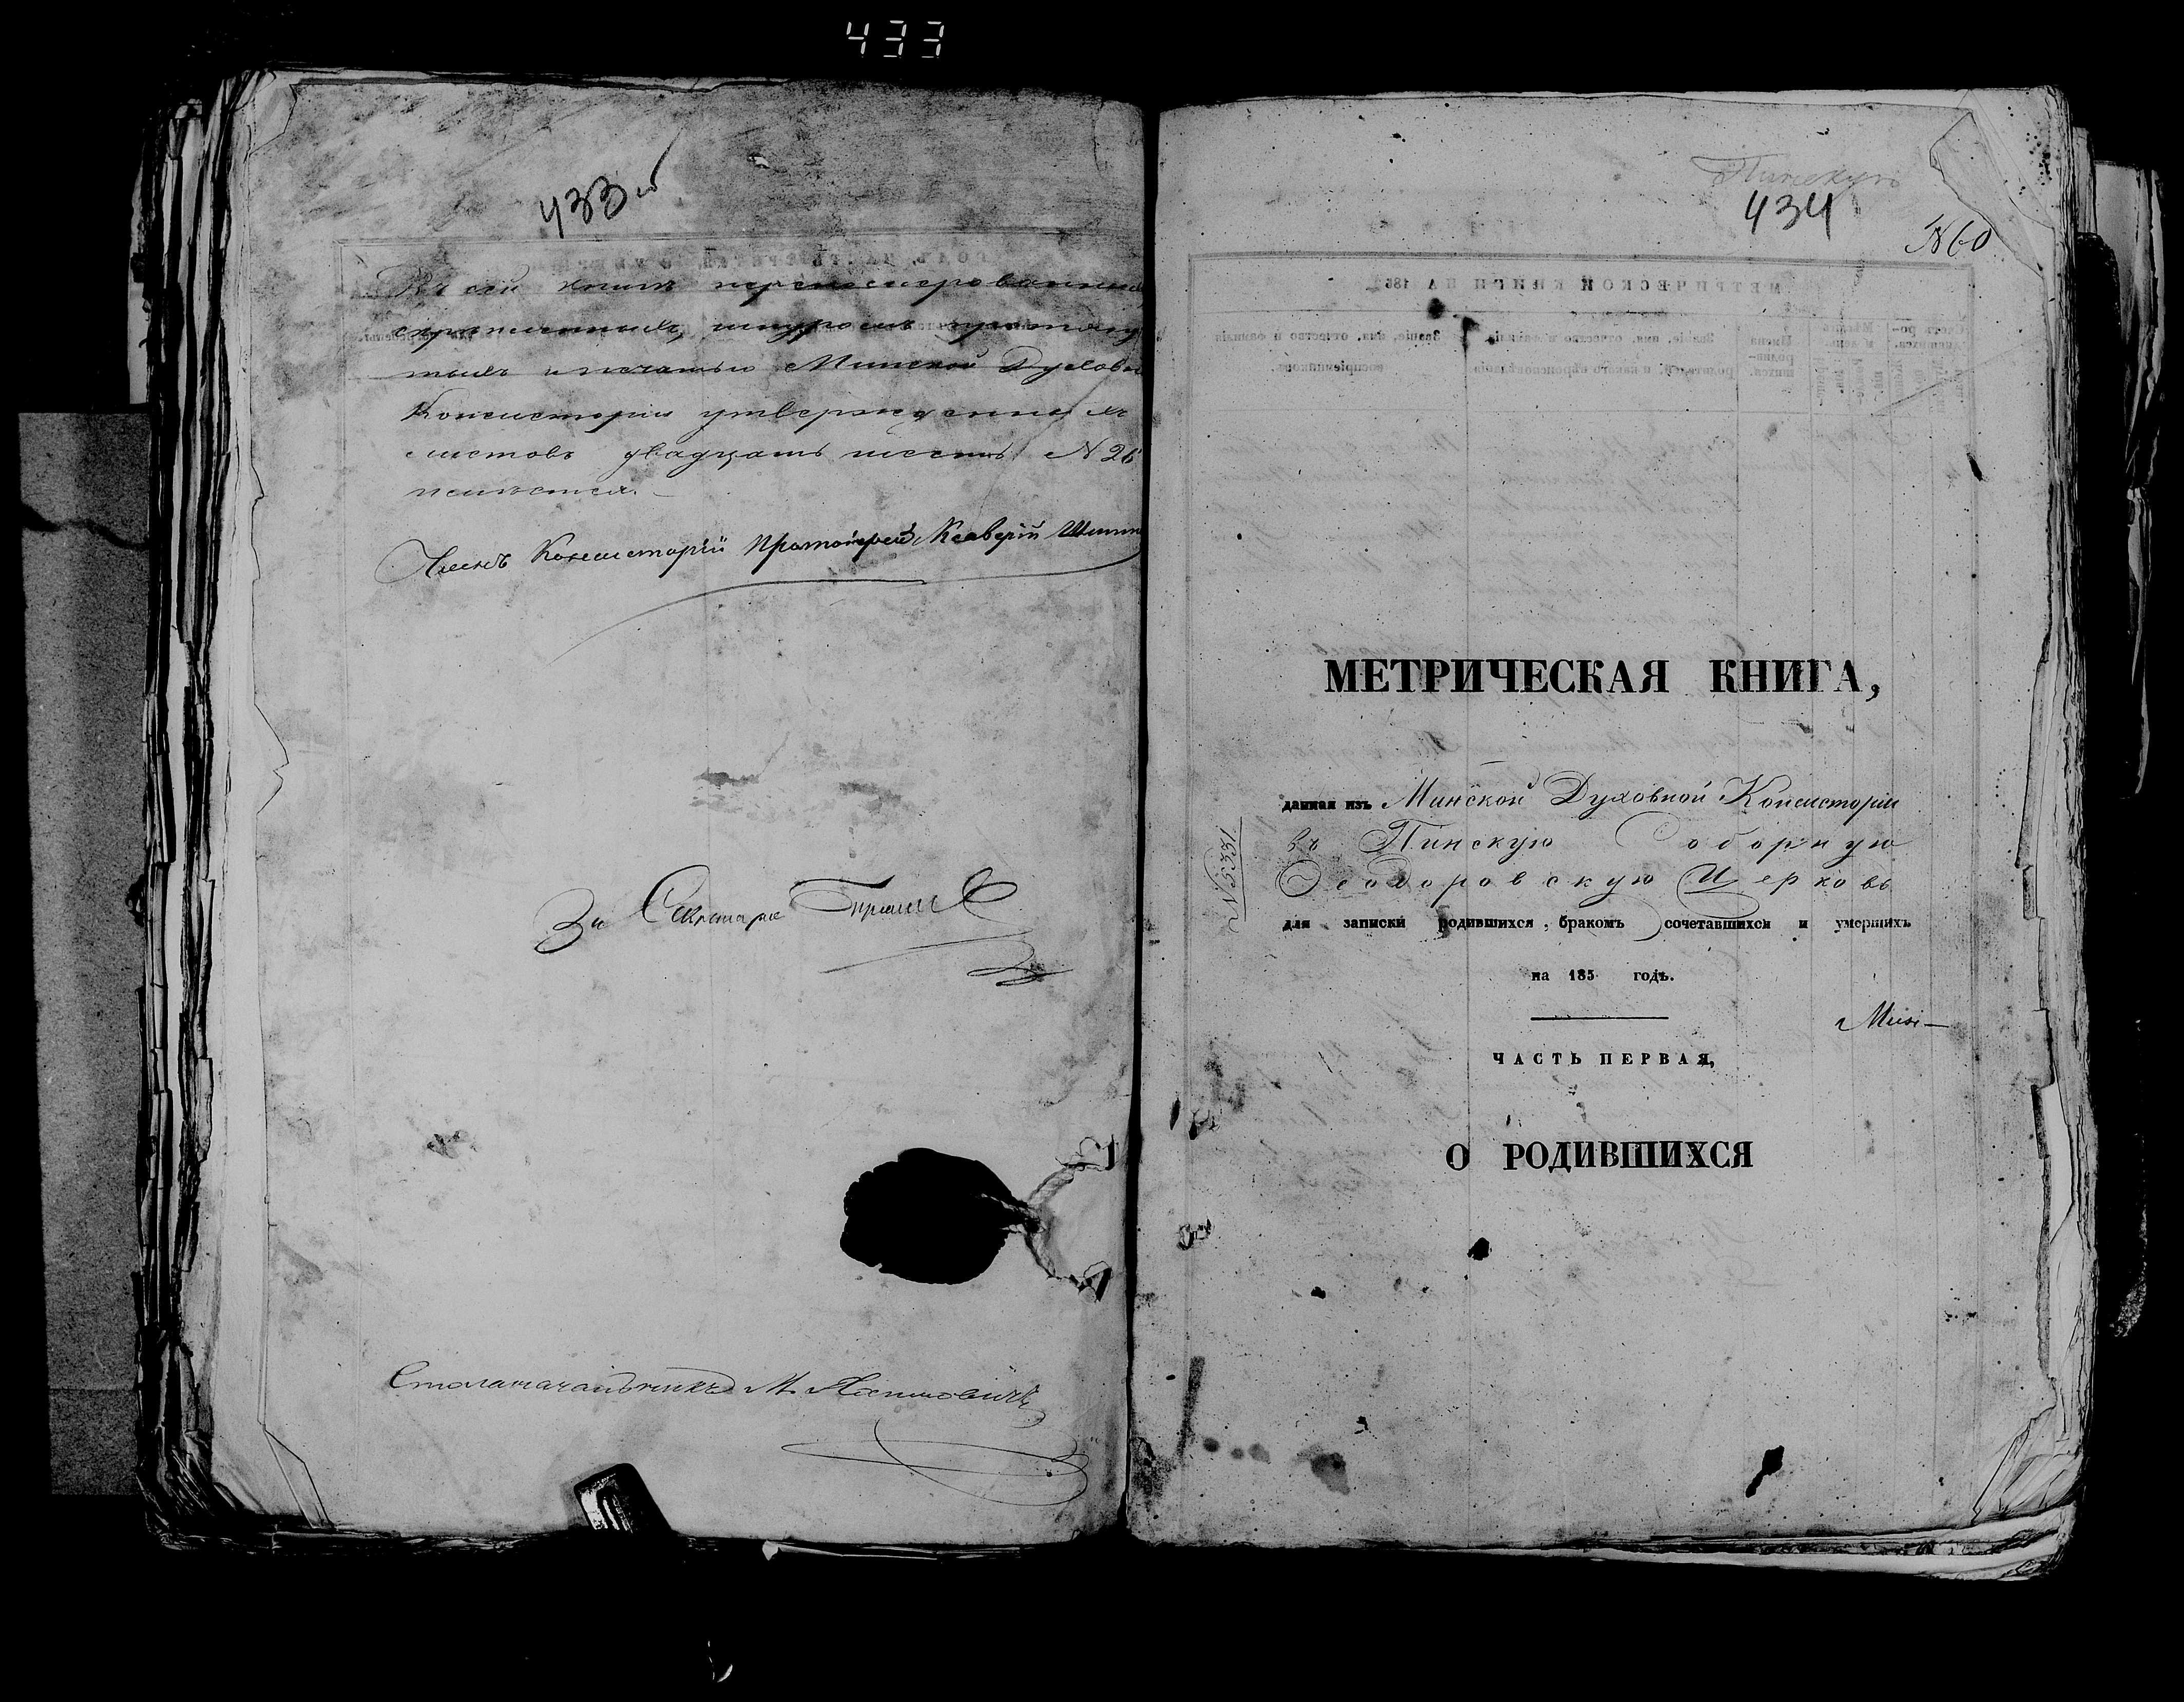 433
433 об
Въ сей книгѣ перенумерованныхъ
скрѣпленныхъ, шнуромъ
и печатью Минской Духовн
Консисторіи утвержденныхъ
листовъ двадцать шесть N 26
Членъ Консисторіи Протоіерей Ксаверій
За Секретаря
Столоначальникъ М.
Пинскую
434
N60
МЕТРИЧЕСКАЯ КНИГА,
данная изъ Минской Духовной Консисторіи
въ Пинскую Соборную
Ѳеодоровскую Церковь
N 5331
для записки родившихся, бракомъ сочетавшихся и умершихъ
на 185 годъ.
ЧАСТЬ ПЕРВАЯ,
О РОДИВШИХСЯ